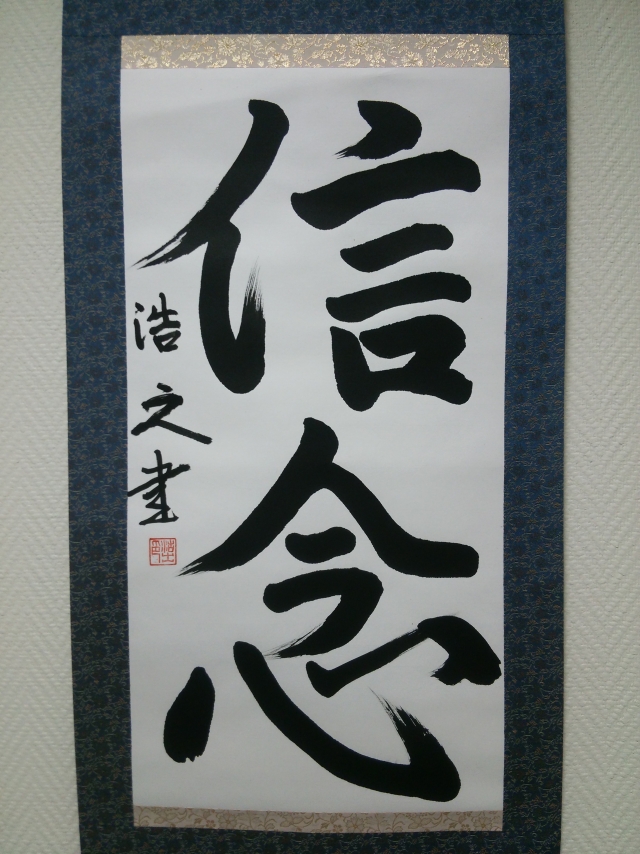 信念
浩之書